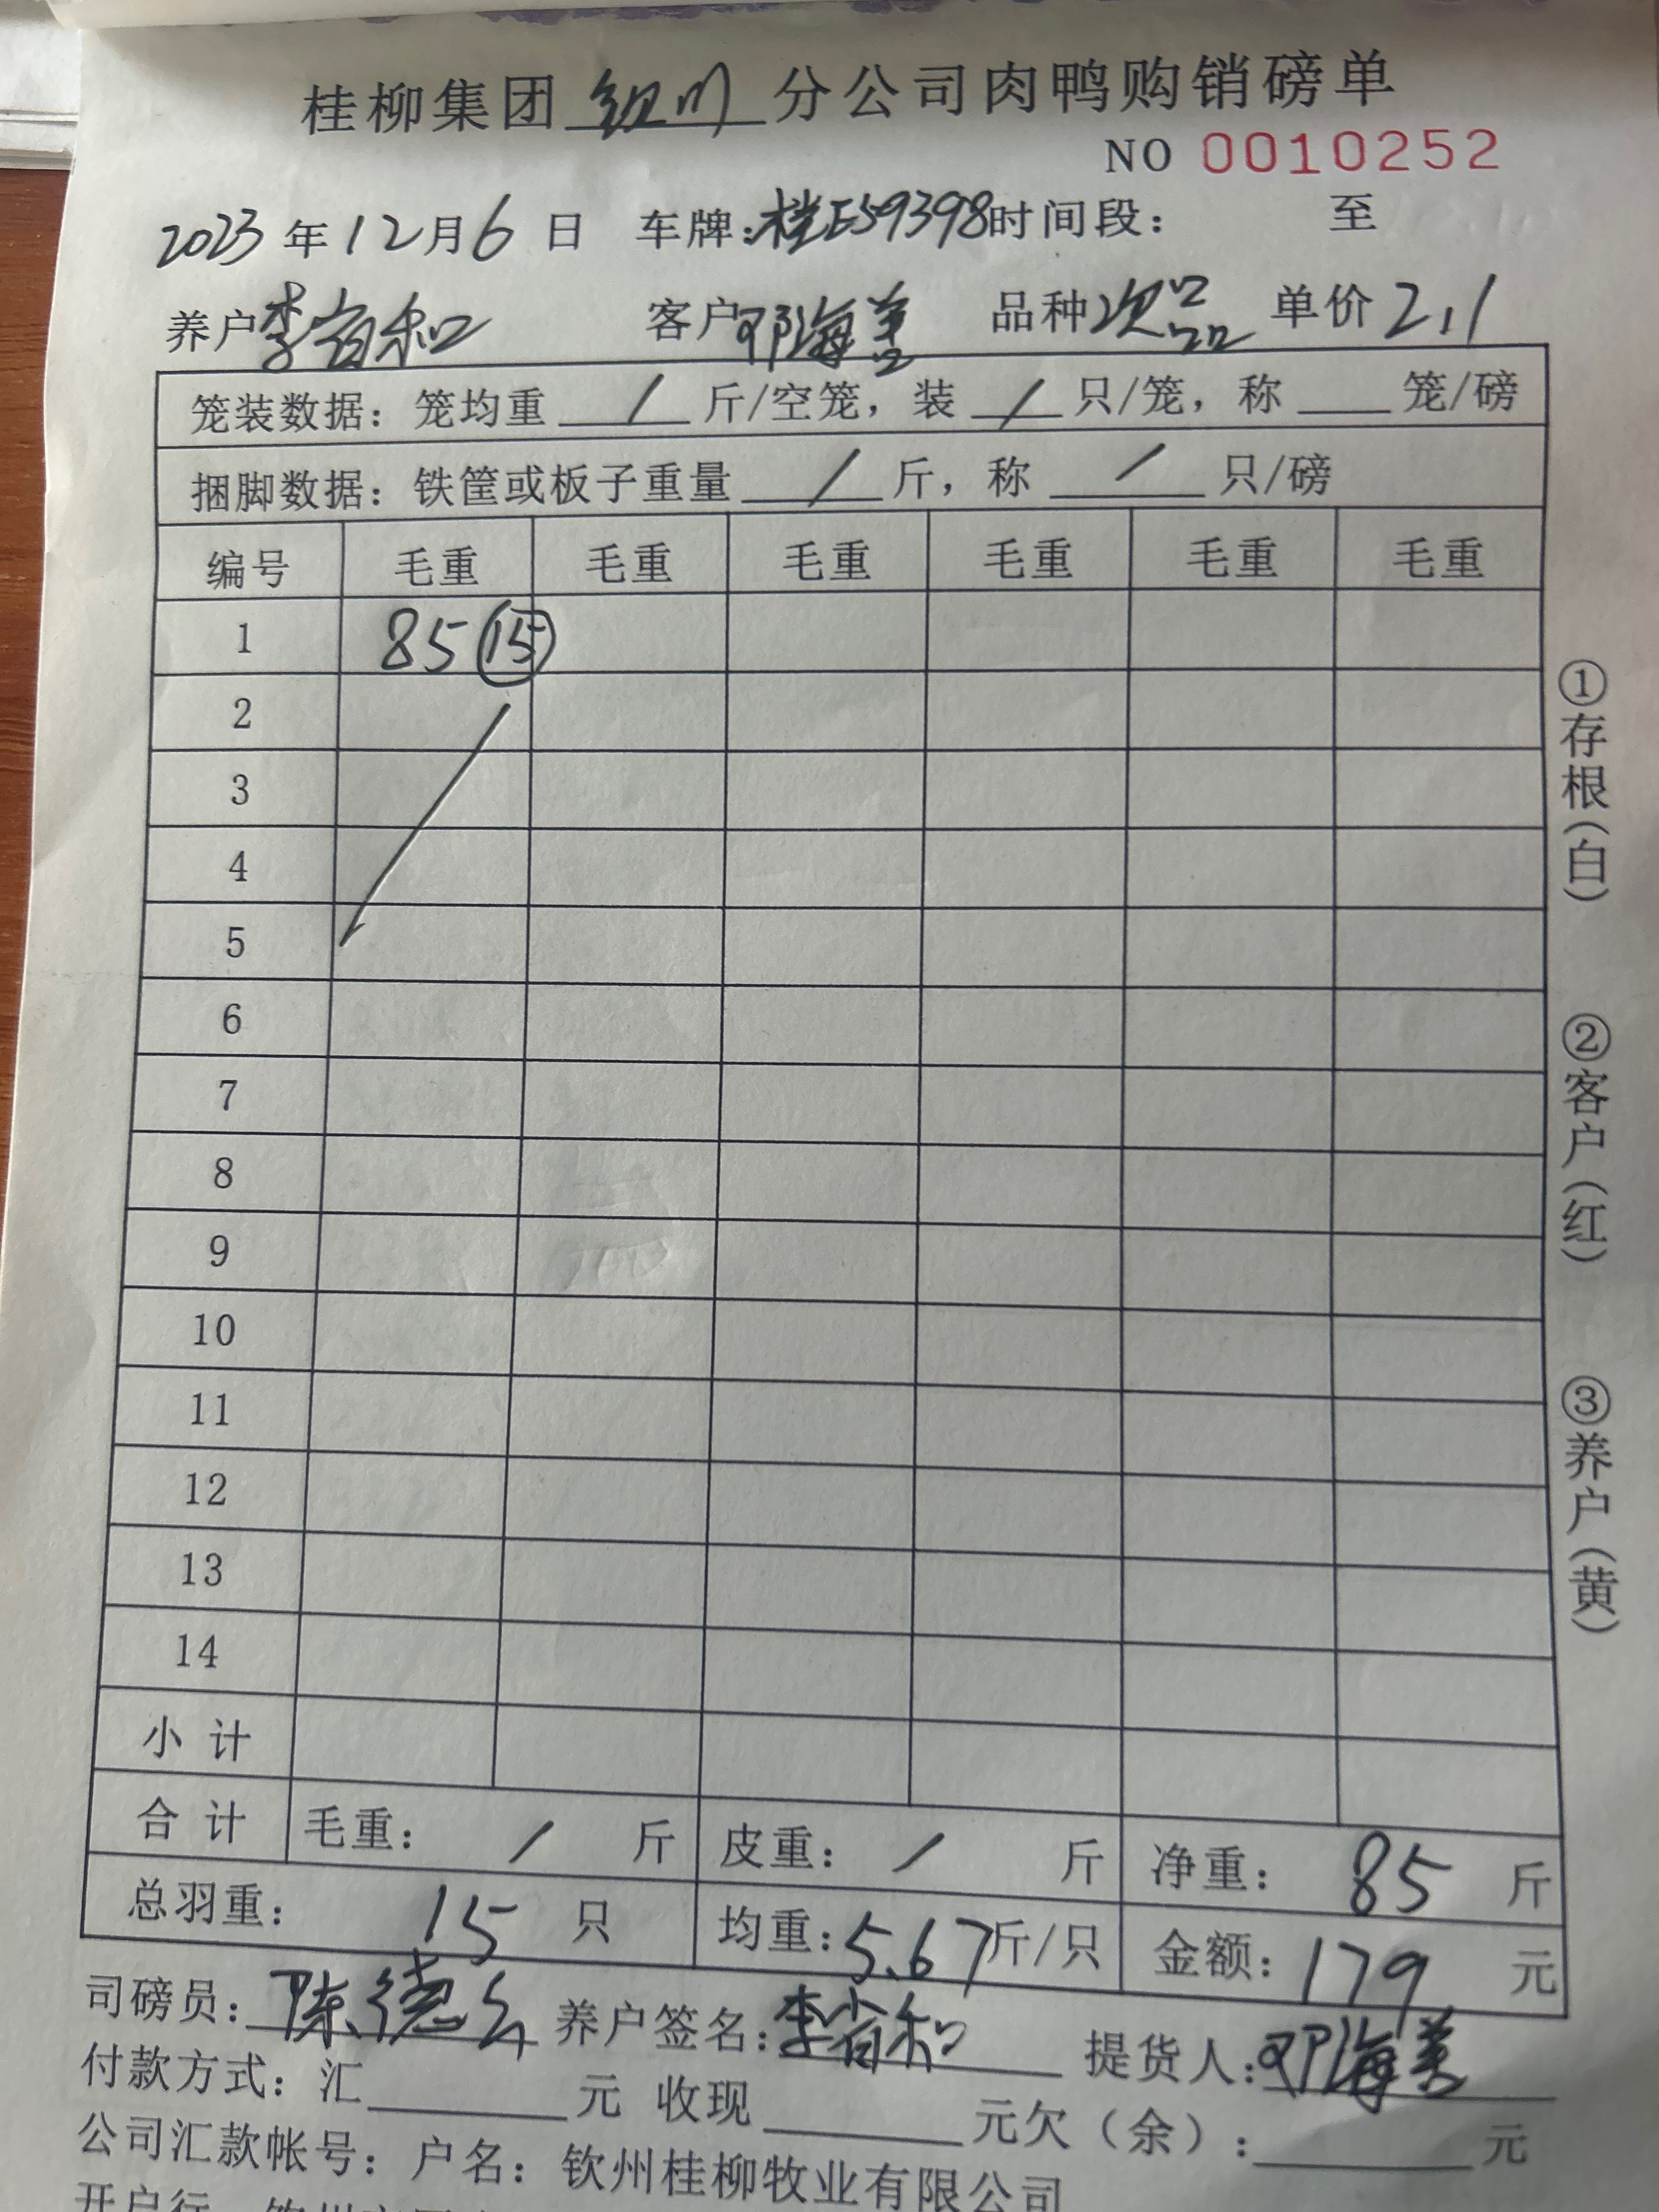 桂柳集团 钦州 分公司肉鸭购销磅单
NO 0010252
2023 年 12 月 6 日 车牌：桂E59398 时间段： 至
养户 李 和 客户 邓海美 品种 次品 单价 2.1
笼装数据：笼均重 / 斤/空笼，装 / 只/笼，称 笼/磅
捆脚数据：铁筐或板子重量 / 斤，称 / 只/磅
编号 毛重 毛重 毛重 毛重 毛重 毛重
1 85 ⑮
2
3
4
5
6
7
8
9
10
11
12
13
14
小 计
合 计 毛重： / 斤 皮重： / 斤 净重： 85 斤
总羽重： 15 只 均重：5.67斤/只 金额：179 元
司磅员：陈德 养户签名：李 和 提货人：邓海美
付款方式：汇 元 收现 元欠（余）： 元
公司汇款帐号：户名：钦州桂柳牧业有限公司
开户行
①存根（白）
②客户（红）
③养户（黄）